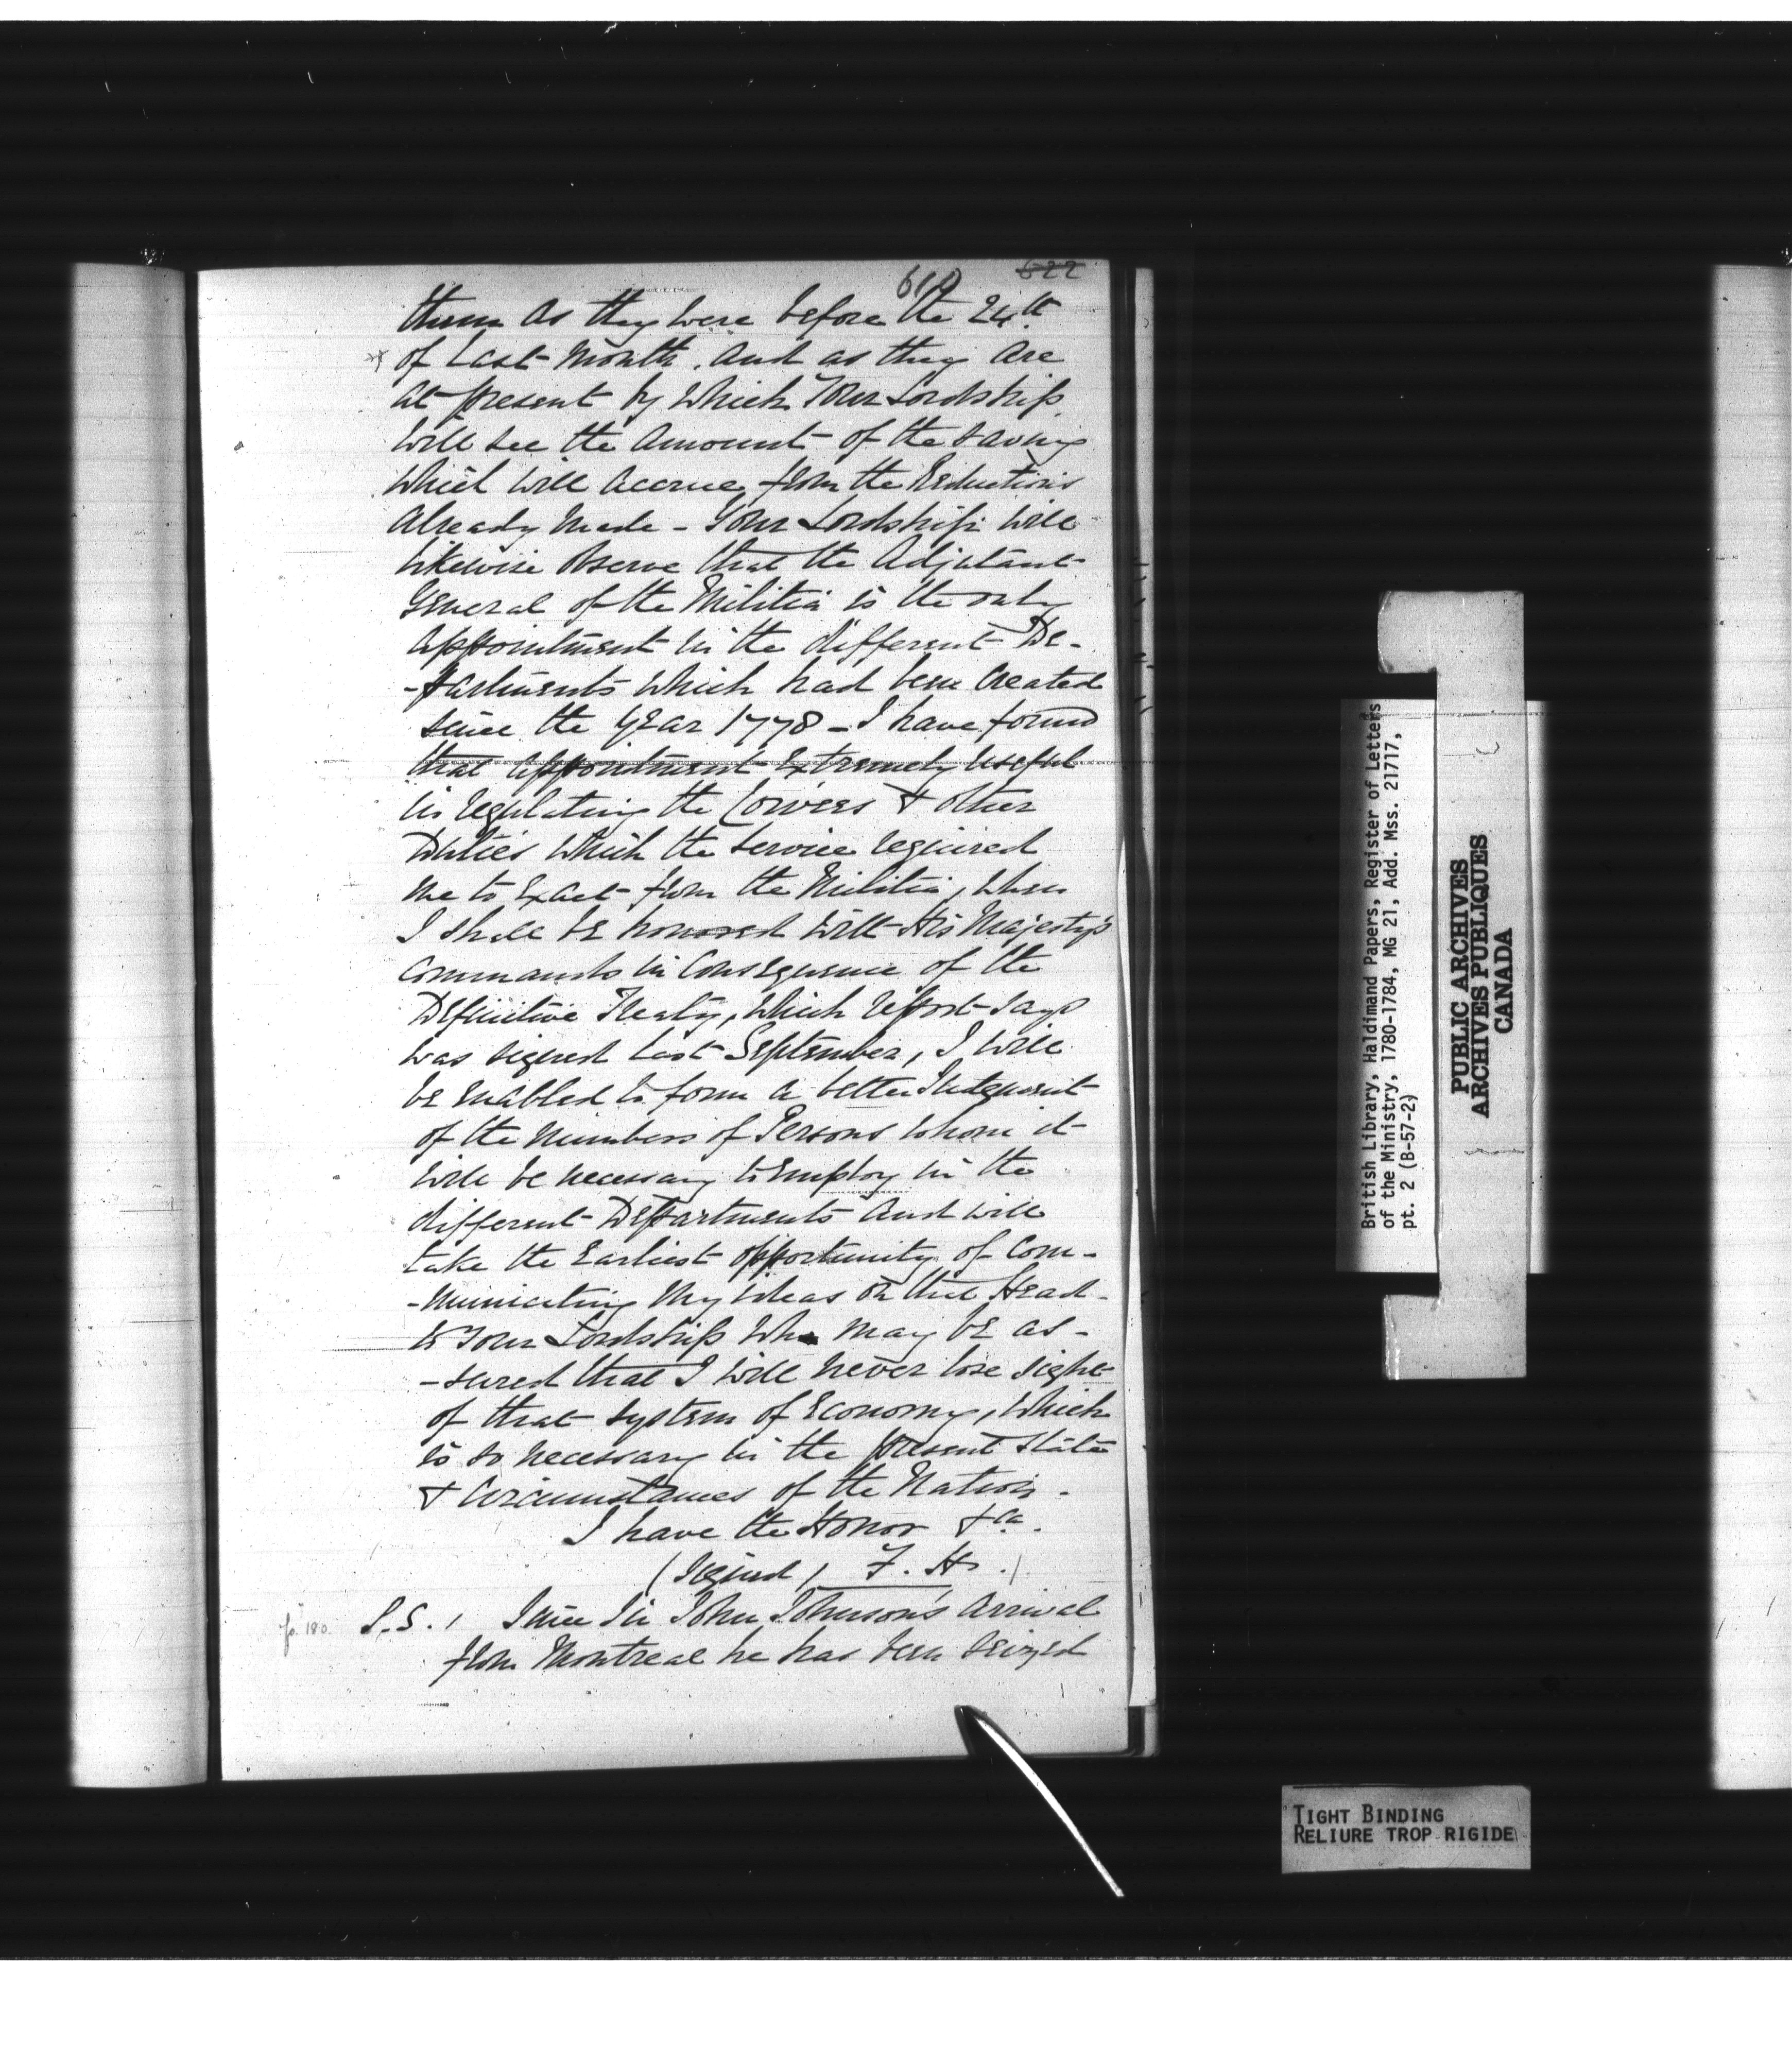 610 622
them as they were before the 24th
of Last Month. And as they Are
at present by which Your Lordship
will see the Amount of the Saving
which will Accrue from the Reductions
Already Made - Your Lordship will
likewise Observe that the Adjutant
General of the Militia is the only
Appointment in the different De-
-partments which had been Created
since the Year 1778 - I have found
that Appointment Extremely Useful
in regulating the Corvees & other
Duties which the Service required
me to Exact from the Militia, when
I shall be honored with His Majesty's
Commands in Consequence of the
Definitive Treaty, which report says
was signed last September, I will
be enabled to form a better Judgement
of the Numbers of Persons whom it
will be necessary to Employ in the
different Departments And will
take the Earliest opportunity of Com-
-municating My Ideas on that Head
to Your Lordship Who may be as-
-sured that I will never lose sight
of that System of Economy, which
is so necessary in the present State
& Circumstances of the Nation.
I have the Honor &ca.
(Signed) F. H.
fo. 180. P.S. Since Sir John Johnson's Arrival
from Montreal he has been seized
British Library, Haldimand Papers, Register of Letters
of the Ministry, 1780-1784, MG 21, Add. Mss. 21717,
pt. 2 (B-57-2)
PUBLIC ARCHIVES
ARCHIVES PUBLIQUES
CANADA
TIGHT BINDING
RELIURE TROP RIGIDE